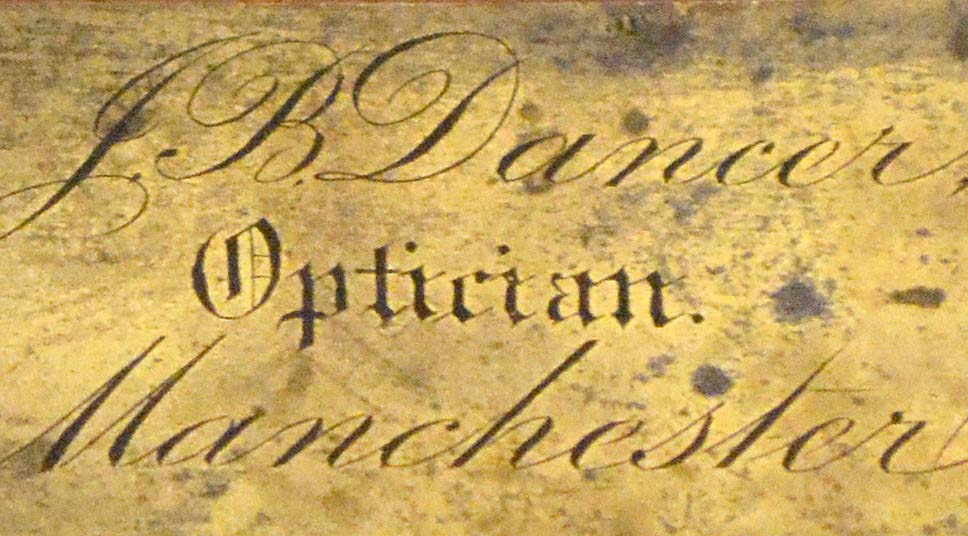 J. B. Dancer,
Optician.
Manchester